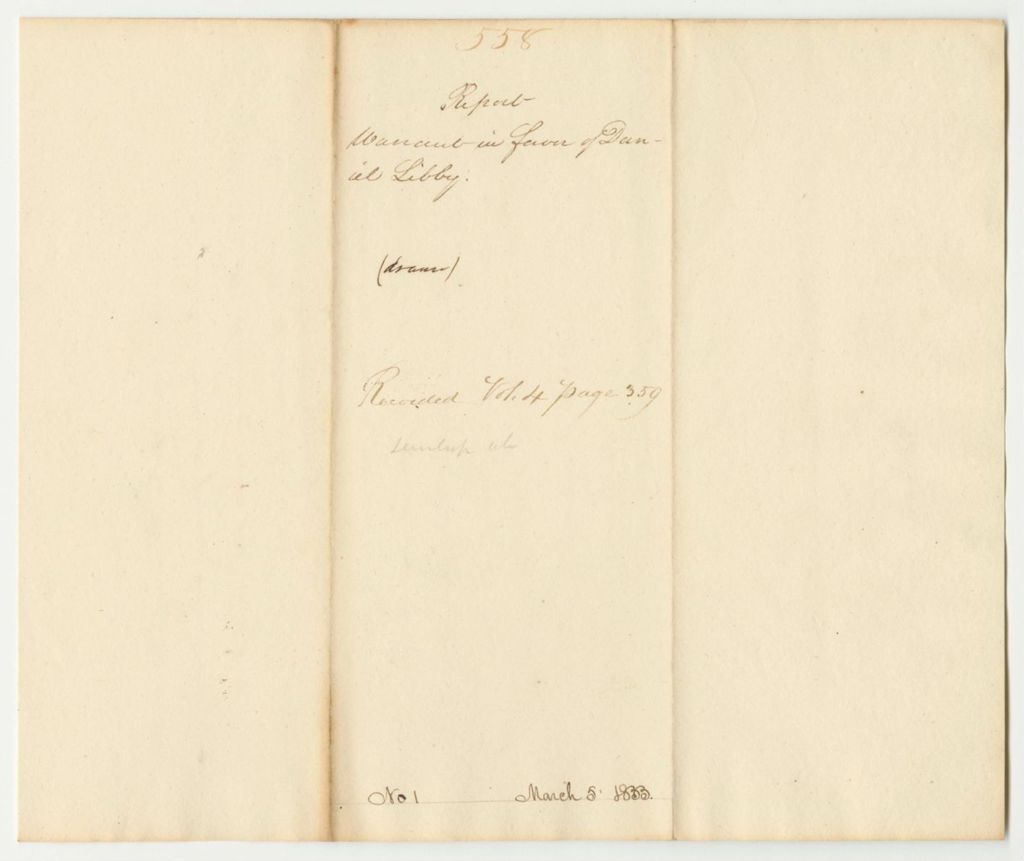 558
Report
Warrant in favor of Dan-
iel Libby.
(drawn)
Recorded Vol. 4 page 359
No 1 March 5 1833.